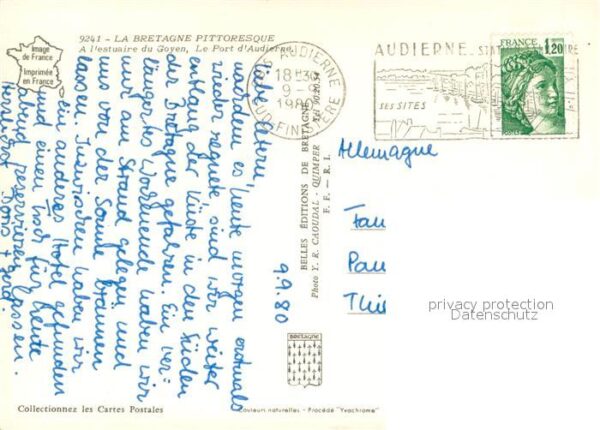 9241 - LA BRETAGNE PITTORESQUE
A l'estuaire du Goyen, Le Port d'Audierne.
Image
de France
Imprimée
en France
AUDIERNE
18H30
9-9
1980
SUD-FINISTÈRE
AUDIERNE
SES SITES
FRANCE
1,20
Liebe Eltern,
nachdem es heute morgen erstmals
wieder regnete, sind wir weiter
entlang der Küste in den Süden
der Bretagne gefahren. Ein ver-
längertes Wochenende haben wir
nur am Strand gelegen und
uns von der Sonne bräunen
lassen. Inzwischen haben wir
ein anderes Hotel gefunden
und einen Tisch für heute
abend reservieren lassen.
Doris + Gerd.
9.9.80
BELLES ÉDITIONS DE BRETAGNE
Photo Y. R. CAOUDAL - QUIMPER
F. F. - R. I.
Allemagne
Fam
Pau
This
privacy protection
Datenschutz
BRETAGNE
Collectionnez les Cartes Postales
Couleurs naturelles - Procédé "Yvochrome"